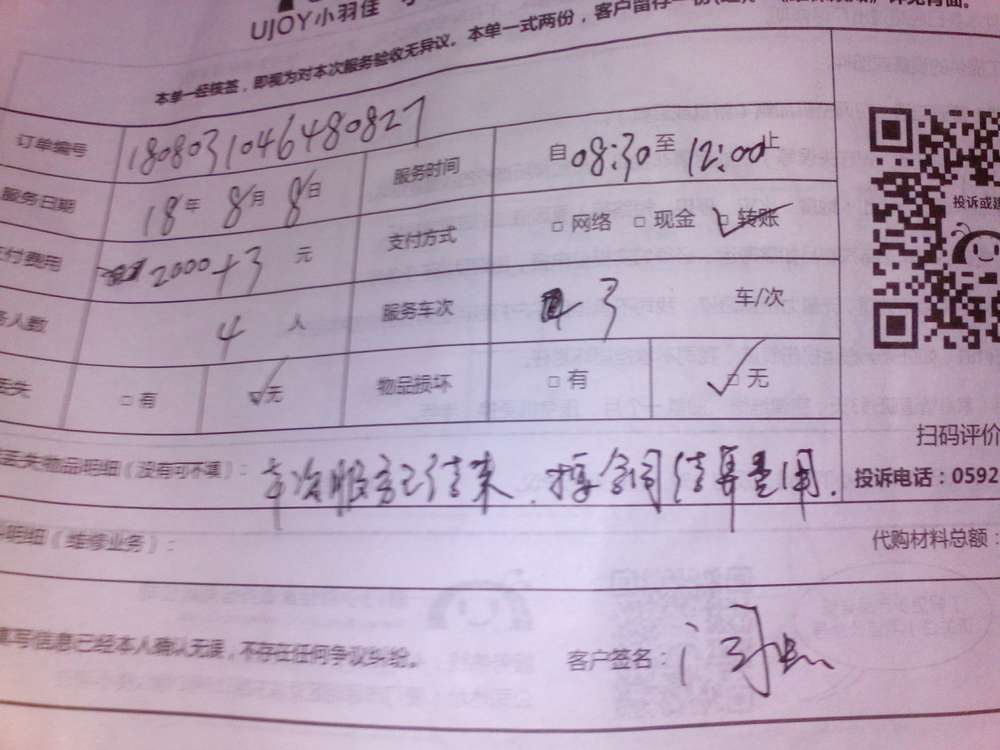 UJOY小羽佳
本单一经核签，即视为对本次服务验收无异议。本单一式两份，客户留存一份
订单编号 1808031046480827 服务时间 自08:30至12:00止
服务日期 18年8月8日 支付方式 □网络 □现金 ☑转账
付费用 2000+3 元 服务车次 3 车/次
人数 4 人
丢失 □有 ☑无 物品损坏 □有 ☑无
投诉或建
扫码评价
丢失物品明细（没有可不填）： 本次服务已结束，按合同结算费用.
投诉电话：0592
明细（维修业务）： 代购材料总额：
填写信息已经本人确认无误，不存在任何争议纠纷。 客户签名：